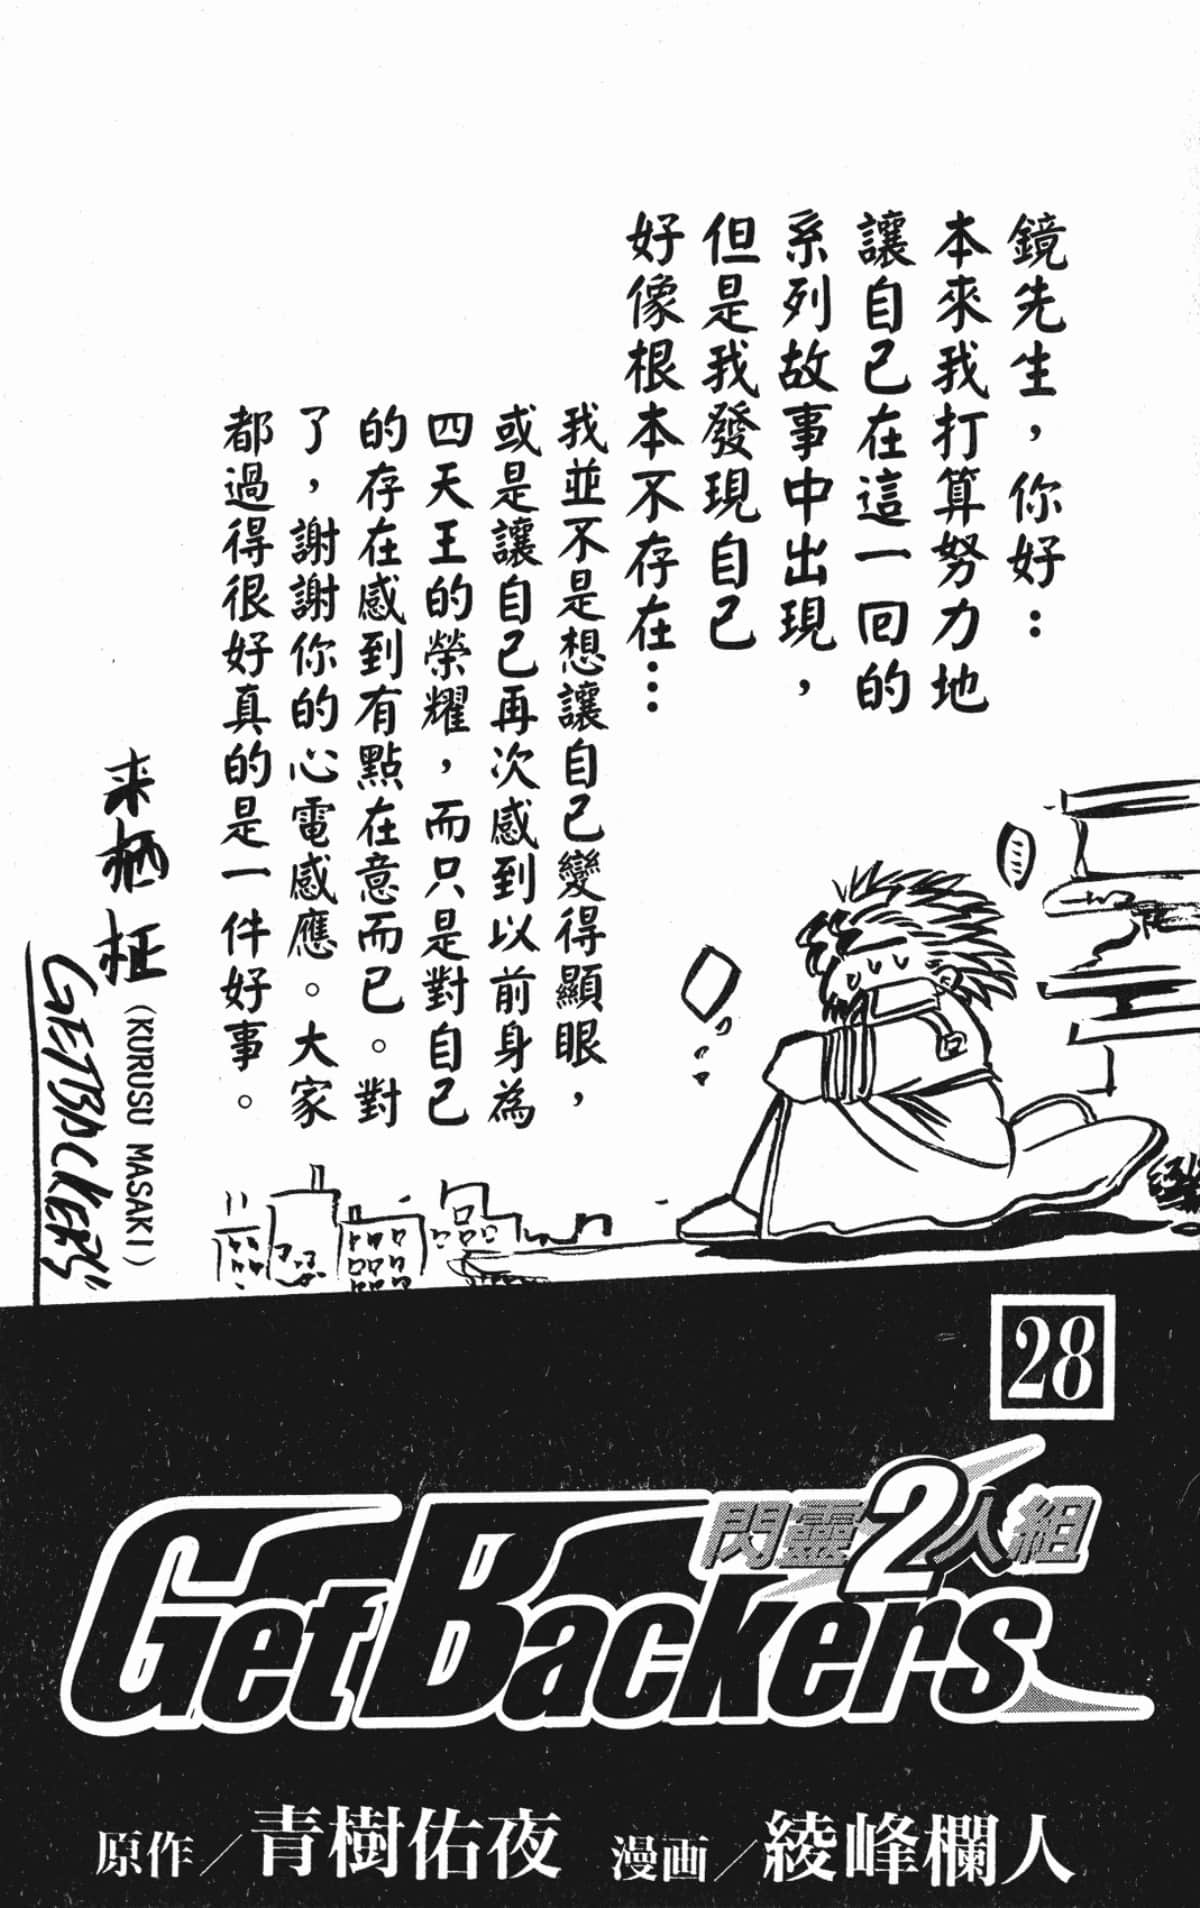 鏡先生，你好：
本來我打算努力地
讓自己在這一回的
系列故事中出現，
但是我發現自己
好像根本不存在…
我並不是想讓自己變得顯眼，
或是讓自己再次感到以前身為
四天王的榮耀，而只是對自己
的存在感到有點在意而已。對
了，謝謝你的心電感應。大家
都過得很好真的是一件好事。
来栖 柾
(KURUSU MASAKI)
GETBACKERS
28
閃靈2人組
GetBackers
原作／青樹佑夜 漫画／綾峰欄人